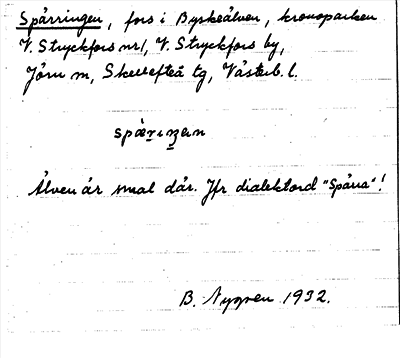 Spärringen, fors i Byskeälven, kronoparken
V. Stryckfors nr 1, V. Stryckfors by,
Jörn sn, Skellefteå tg, Västerb. l.
Älven är smal där. Jfr dialektord "Spärra"!
B. Nygren 1932.